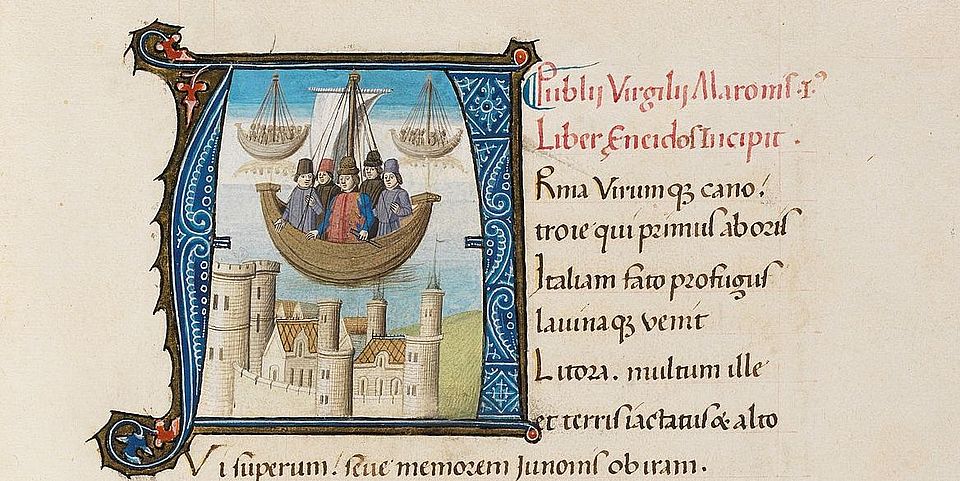 Publij Virgilij Maronis .I.
Liber Eneidos Incipit .
Rma Virumqȝ cano .
troie qui primus ab oris
Italiam fato profugus
lauinaqȝ venit
Litora . multum ille
et terris iactatus & alto
Vi superum . seue memorem Junonis ob iram .